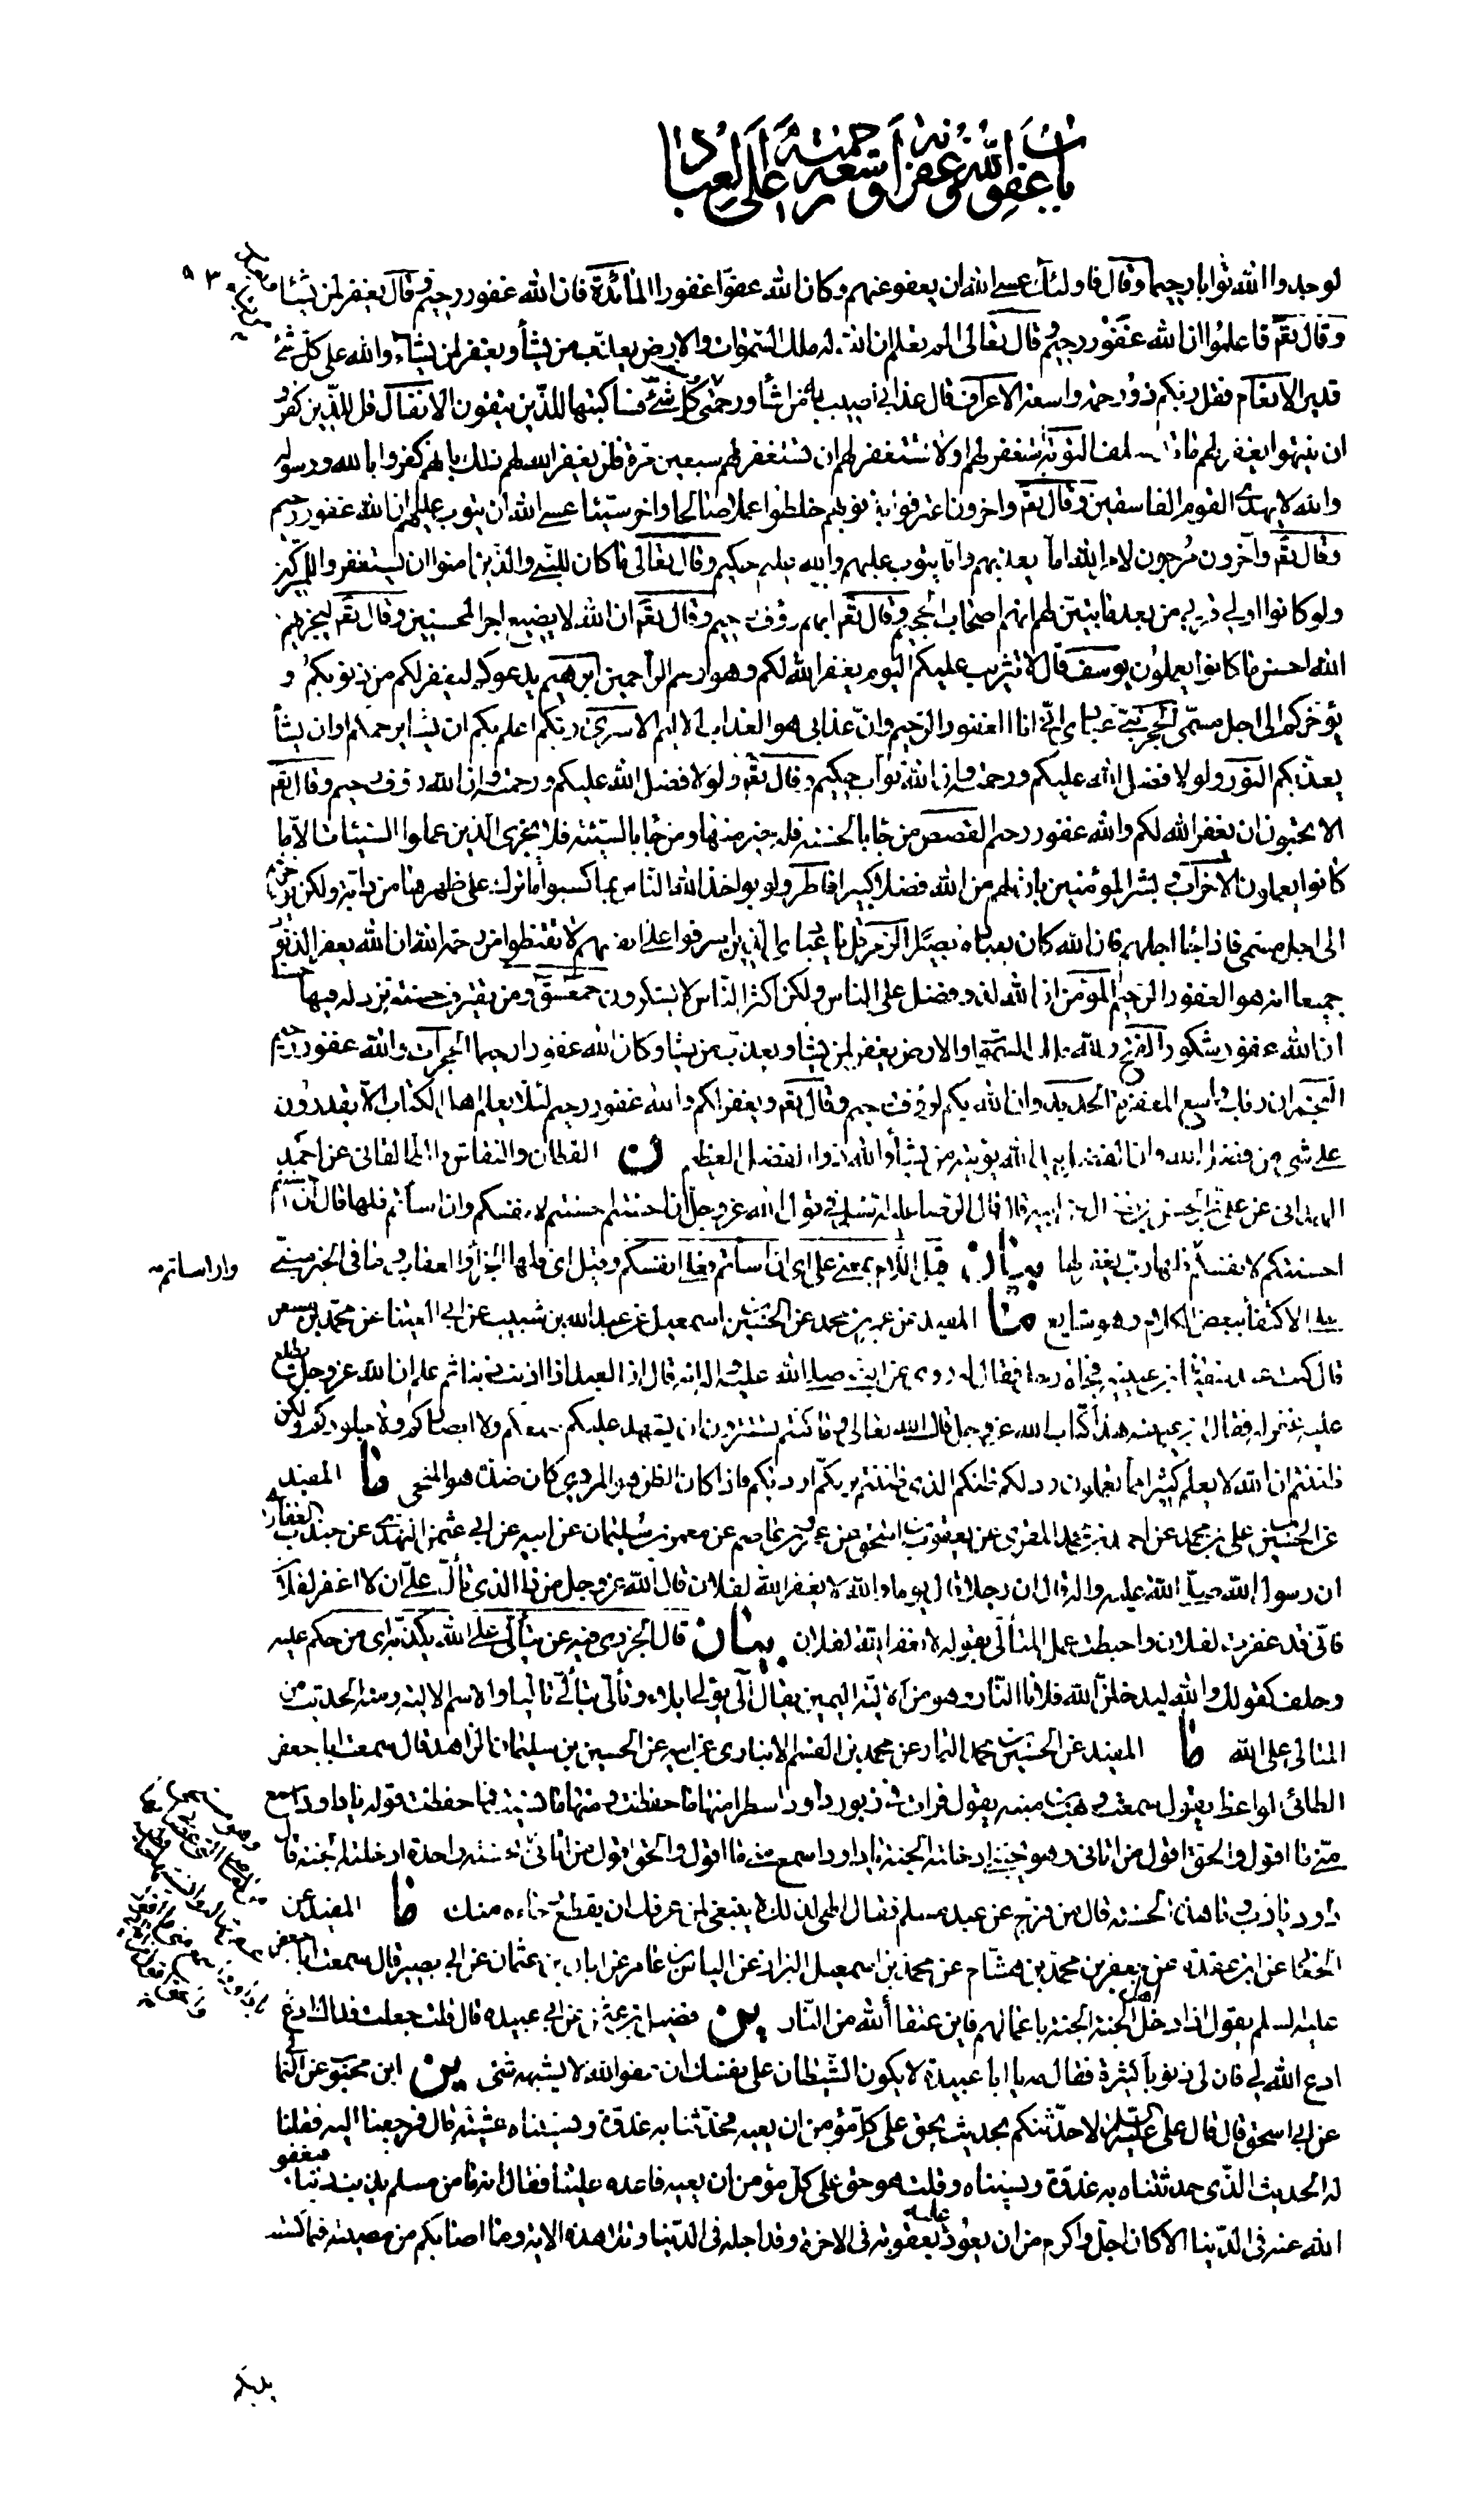 باب عفو الله وغفرانه وسعة رحمته على العباد
لوجدوا الله توابا رحيما وقال فاولئك عسى الله ان يعفو عنهم وكان الله عفوا غفورا المائدة فان الله غفور رحيم وقال يغفر لمن يشاء
وقال تعم فاعلموا ان الله غفور رحيم قال تعالى الم تعلم ان الله له ملك السموات والارض يعذب من يشاء ويغفر لمن يشاء والله على كل شئ
قدير الانعام فقل ربكم ذو رحمة واسعة الاعراف قال عذابي اصيب به من اشاء ورحمتي وسعت كل شئ فساكتبها للذين يتقون الانفال قل للذين كفروا
ان ينتهوا يغفر لهم ما قد سلف التوبة استغفر لهم او لا تستغفر لهم ان تستغفر لهم سبعين مرة فلن يغفر الله لهم ذلك بانهم كفروا بالله ورسوله
والله لا يهدي القوم الفاسقين وقال تعم واخرون اعترفوا بذنوبهم خلطوا عملا صالحا واخر سيئا عسى الله ان يتوب عليهم ان الله غفور رحيم
وقال تعم وآخرون مرجون لامر الله اما يعذبهم واما يتوب عليهم والله عليم حكيم وقال تعالى ما كان للنبي والذين امنوا ان يستغفروا للمشركين
ولو كانوا اولي قربى من بعد ما تبين لهم انهم اصحاب الجحيم وقال تعم انه بهم رؤف رحيم وقال تعم ان الله لا يضيع اجر المحسنين وقال تعم ليجزيهم
الله احسن ما كانوا يعملون يوسف قال لا تثريب عليكم اليوم يغفر الله لكم وهو ارحم الراحمين ابرهيم يدعوكم ليغفر لكم من ذنوبكم و
يؤخركم الى اجل مسمى الحجر نبئ عبادي اني انا الغفور الرحيم وان عذابي هو العذاب الاليم الاسرى ربكم اعلم بكم ان يشا يرحمكم او ان يشأ
يعذبكم النور ولولا فضل الله عليكم ورحمته وان الله تواب حكيم وقال تعم ولولا فضل الله عليكم ورحمته وان الله رؤف رحيم وقال تعم
الا تحبون ان يغفر الله لكم والله غفور رحيم القصص من جا بالحسنة فله خير منها ومن جا بالسيئة فلا يجزى الذين عملوا السيئات الا ما
كانوا يعملون الاحزاب وبشر المؤمنين بان لهم من الله فضلا كبيرا فاطر ولو يواخذ الله الناس بما كسبوا ما ترك على ظهرها من دابة ولكن يؤخرهم
الى اجل مسمى فاذا جاء اجلهم فان الله كان بعباده بصيرا الزمر قل يا عبادي الذين اسرفوا على انفسهم لا تقنطوا من رحمة الله ان الله يغفر الذنوب
جميعا انه هو الغفور الرحيم المؤمن ان الله لذو فضل على الناس ولكن اكثر الناس لا يشكرون حمعسق ومن يقترف حسنة نزد له فيها حسنا
ان الله غفور شكور الفتح ولله ملك السموات والارض يغفر لمن يشاء ويعذب من يشا وكان الله غفورا رحيما الحجرات والله غفور رحيم
النجم ان ربك واسع المغفرة الحديد وان الله بكم لرؤف رحيم وقال تعم ويغفر لكم والله غفور رحيم لئلا يعلم اهل الكتاب الا يقدرون
على شئ من فضل الله وان الفضل بيد الله يؤتيه من يشاء والله ذو الفضل العظيم ن القطان والنقاش والطالقاني عن احمد
الهمداني عن علي بن الحسن بن فضال عن ابيه قال قال الرضا عليه السلم في قول الله عز وجل ان احسنتم احسنتم لانفسكم وان اسأتم فلها قال ان احسنتم
احسنتم لانفسكم فلها رب يغفر لها بيان قيل اللام بمعنى على اي ان اسأتم فعلى انفسكم وقيل اي فلها الجزاء والعقاب وما في الخبر مبني
وان اساتم
على الاكتفاء ببعض الكلام وهو شايع ما المفيد عن عمر بن محمد عن الحسين بن اسمعيل عن عبد الله بن شبيب عن ابي العينا عن محمد بن مسعر
قال كنت عند سفيان بن عيينه فجاءه رجل فقال له روى عن النبي صلى الله عليه واله انه قال ان العبد اذا اذنب ذنبا ثم علم ان الله عز وجل يطلع
عليه غفر له فقال ابن عيينه هذا كتاب الله عز وجل قال الله تعالى وما كنتم تستترون ان يشهد عليكم سمعكم ولا ابصاركم ولا جلودكم ولكن
ظننتم ان الله لا يعلم كثيرا مما تعملون وذلكم ظنكم الذي ظننتم بربكم ارديكم فاذا كان الظن هو المردي كان ضده هو المنجي ما المفيد
عن الحسين بن علي بن محمد عن احمد بن محمد المقري عن يعقوب بن اسحق عن عمرو بن عاصم عن معمر بن سليمان عن ابيه عن ابي عثمن النهدي عن جندب الغفاري
ان رسول الله صلى الله عليه واله قال ان رجلا قال يوما والله لا يغفر الله لفلان قال الله عز وجل من ذا الذي تألى علي ان لا اغفر لفلان
فاني قد غفرت لفلان واحبطت عمل المتألي بقوله لا يغفر الله لفلان بيان قال الجزري فيه من يتألى على الله يكذبه اي من حكم عليه
وحلف كقولك والله ليدخلن الله فلانا النار وهو من الالية اليمين يقال آلى يؤلي ايلاء وتألى يتألى تأليا والاسم الالية ومنه الحديث من
المتالي على الله ما المفيد عن الحسين بن محمد التمار عن محمد بن القسم الانباري عن ابيه عن الحسين بن سليمان الزاهد قال سمعت ابا جعفر
الطائي الواعظ يقول سمعت وهب بن منبه يقول قرات في زبور داود اسطرا منها ما حفظت ومنها ما نسيت فما حفظت قوله يا داود اسمع
مني ما اقول والحق اقول من اتاني وهو يحبني ادخلته الجنة يا داود اسمع مني ما اقول والحق اقول من اتاني بحسنة واحدة ادخلته الجنة قال
داود يا رب وما هذه الحسنة قال من فرج عن عبد مسلم فقال الهي لذلك لا ينبغي لمن عرفك ان يقطع رجاءه منك ما المفيد عن
الجعابي عن ابن عقدة عن جعفر بن محمد بن هشام عن محمد بن اسمعيل البزاز عن الياس بن عامر عن ابان بن عثمان عن ابي بصير قال سمعت ابا جعفر
عليه السلم يقول اذا دخل اهل الجنة الجنة باعمالهم فاين عتقاء الله من النار ين فضيل بن عثمن عن ابي عبيده قال قلت جعلت فداك ادع
ادع الله لي فان لي ذنوبا كثيرة فقال مه يا ابا عبيدة لا يكون الشيطان عونا على نفسك ان عفو الله لا يشبهه شئ ين ابن محبوب عن الثمالي
عن ابي اسحق قال قال علي عليه السلم لاحدثنكم بحديث يحق على كل مؤمن ان يعيه فحدثنا به غدوة ونسيناه عشية قال فرجعنا اليه فقلنا
له الحديث الذي حدثتناه به غدوة ونسيناه وقلت هو حق على كل مؤمن ان يعيه فاعده علينا فقال انه ما من مسلم يذنب ذنبا فيعفو
الله عنه في الدنيا الا كان اجل واكرم من ان يعود عليه بعقوبة في الاخرة وقد اجله في الدنيا وتلا هذه الاية وما اصابكم من مصيبة فبما كسبت